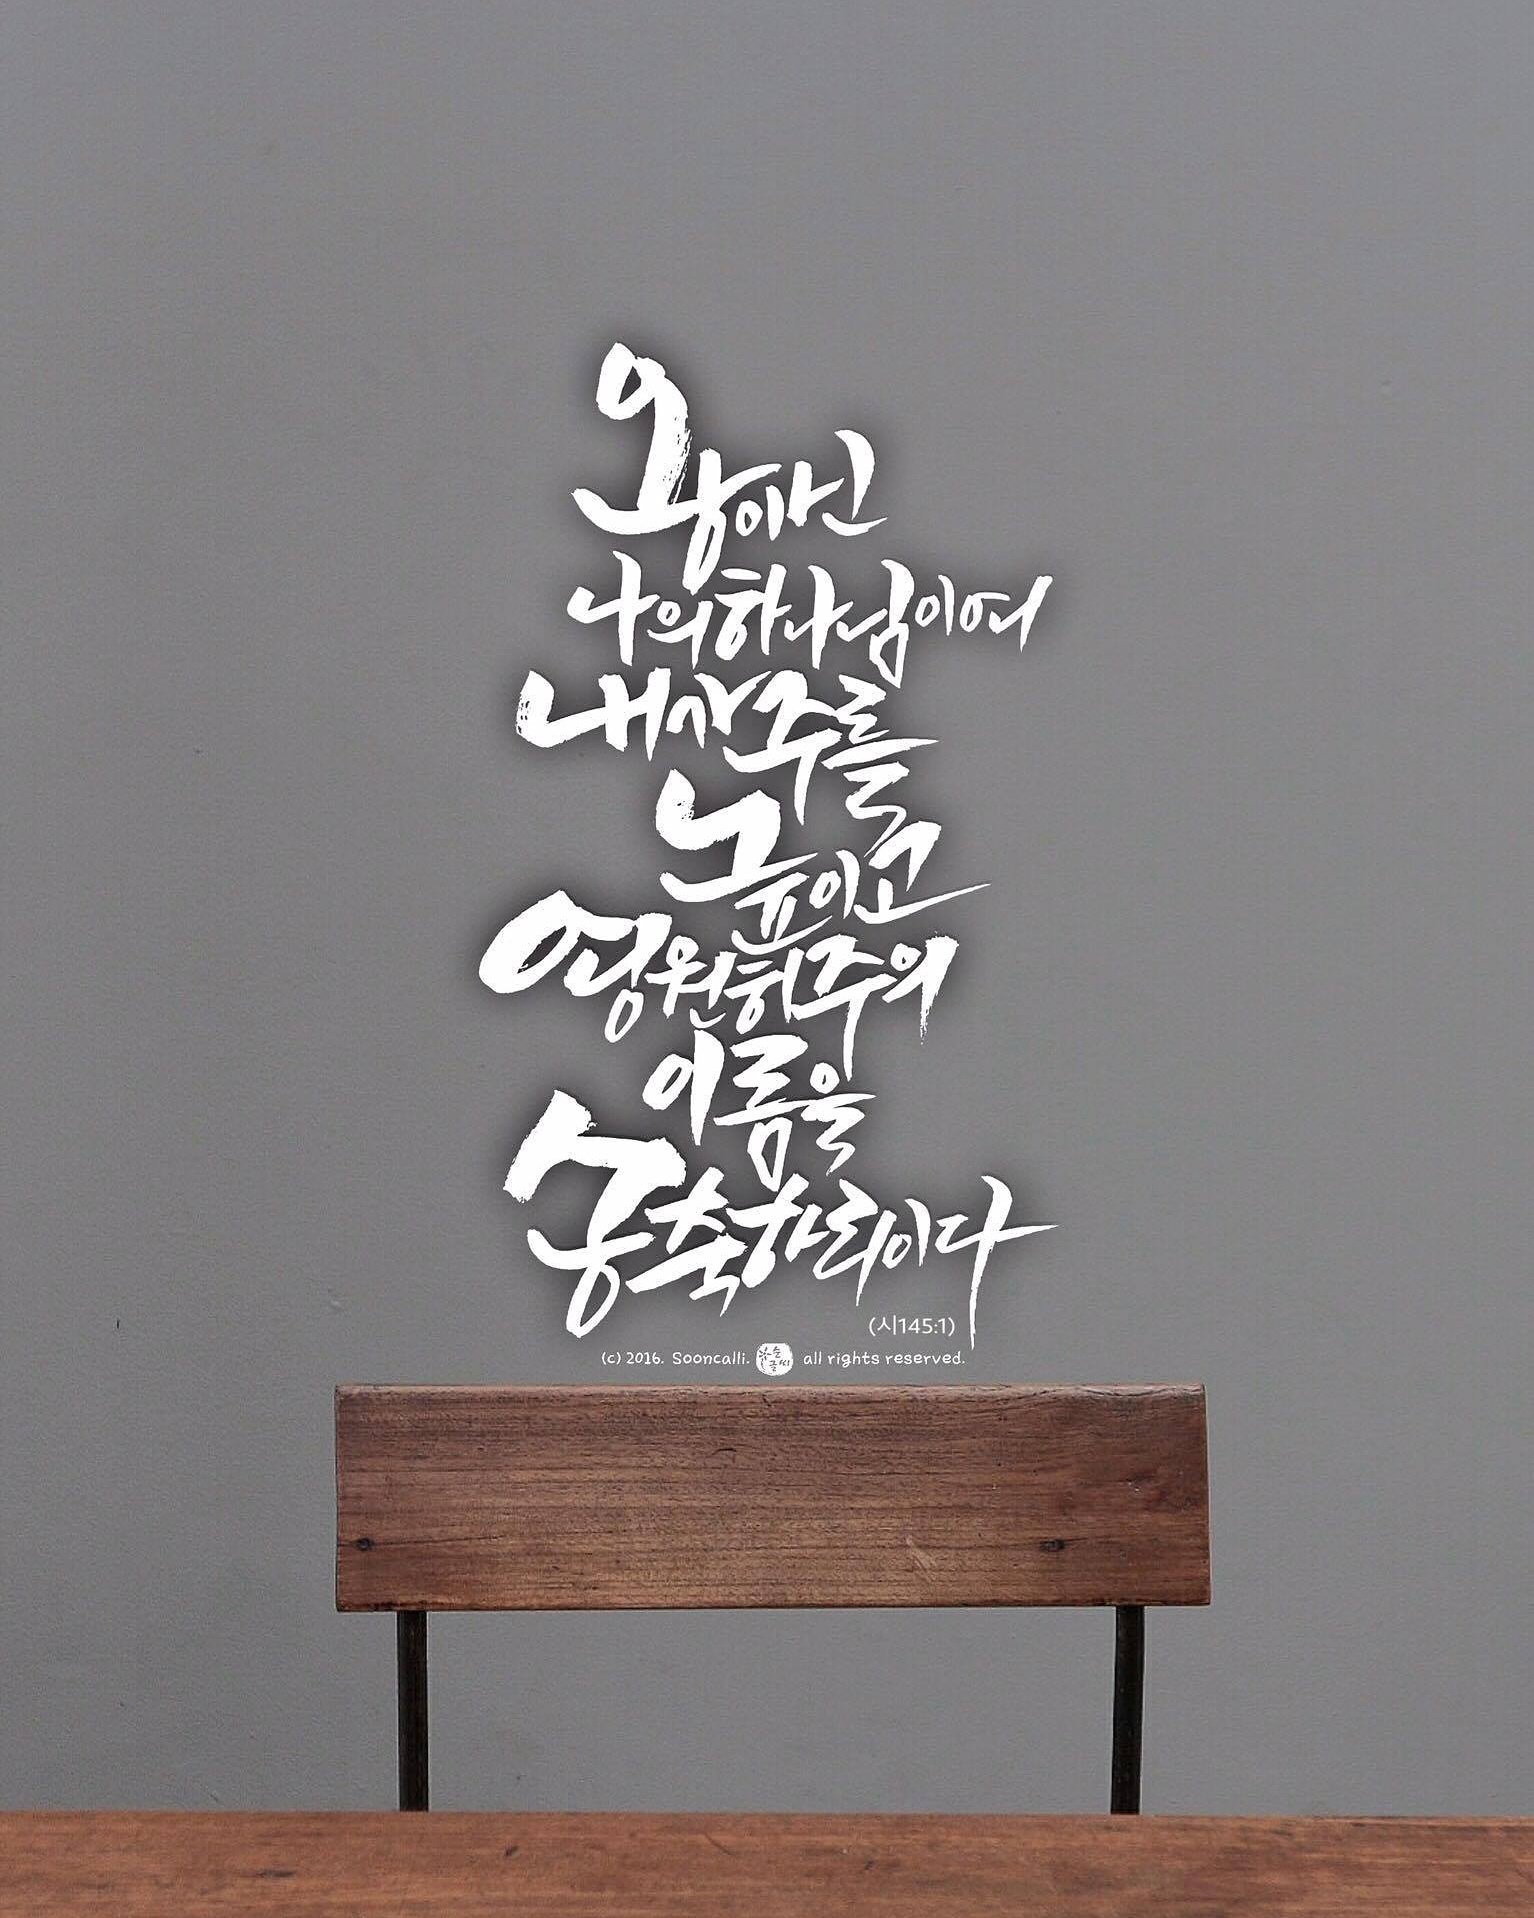 왕이신
나의 하나님이여
내가 주를
높이고
영원히 주의
이름을
송축하리이다
(시145:1)
(c) 2016. Sooncalli. all rights reserved.